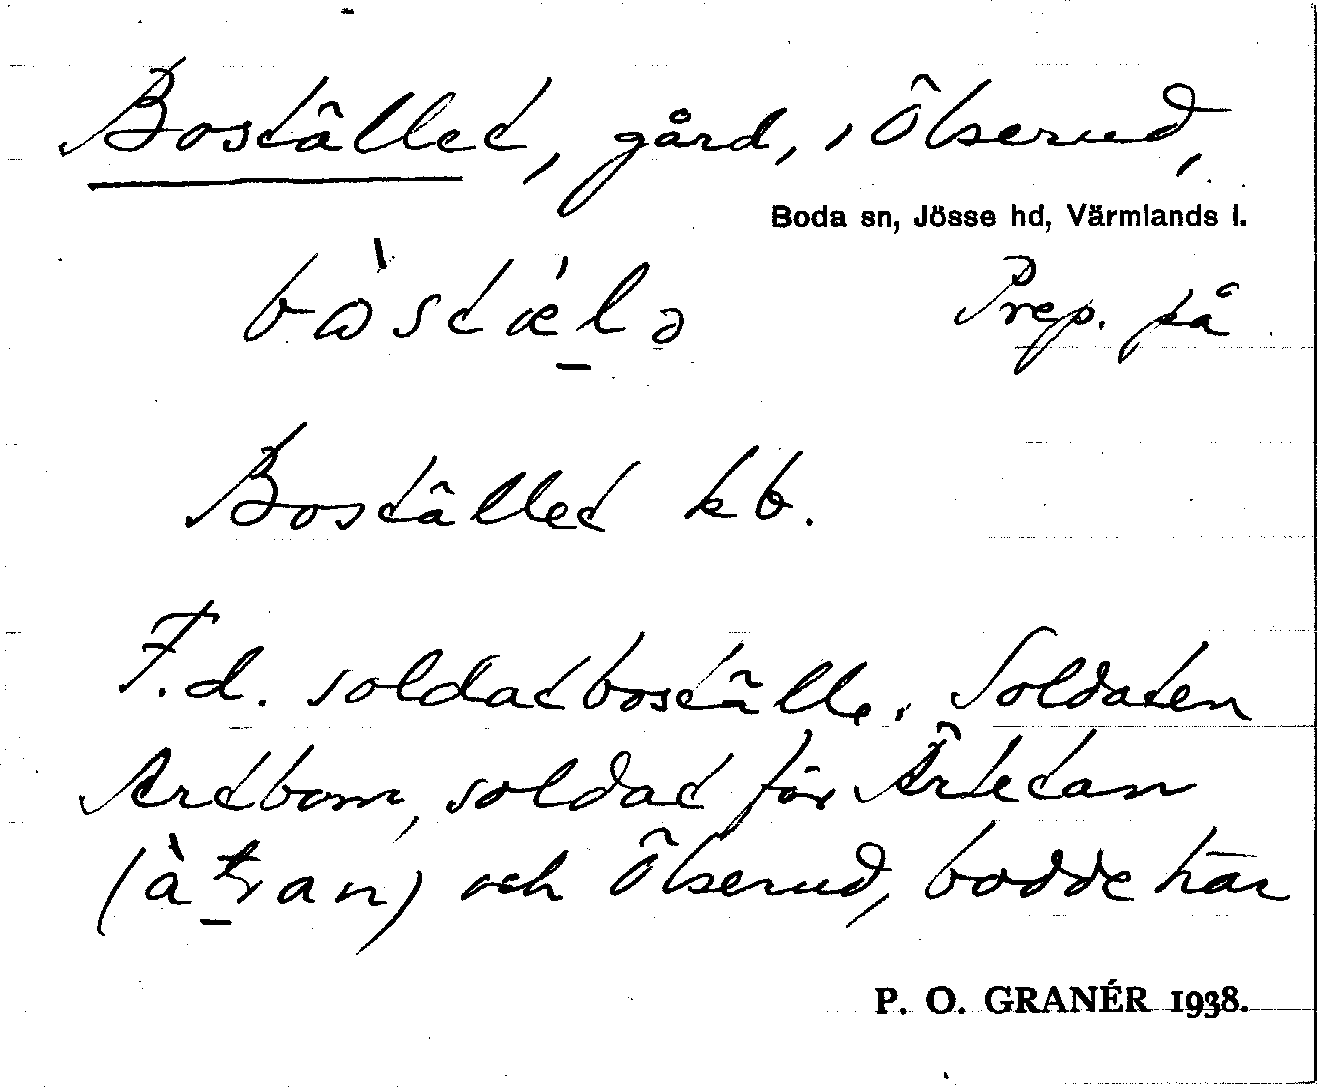 Boställed, gård, i Ölserud,
Boda sn, Jösse hd, Värmlands l.
Prep. på
Bostället kb.
F.d. soldatboställe. Soldaten
Artbom, soldat för
och Ölserud, bodde här
P. O. GRANÉR 1938.